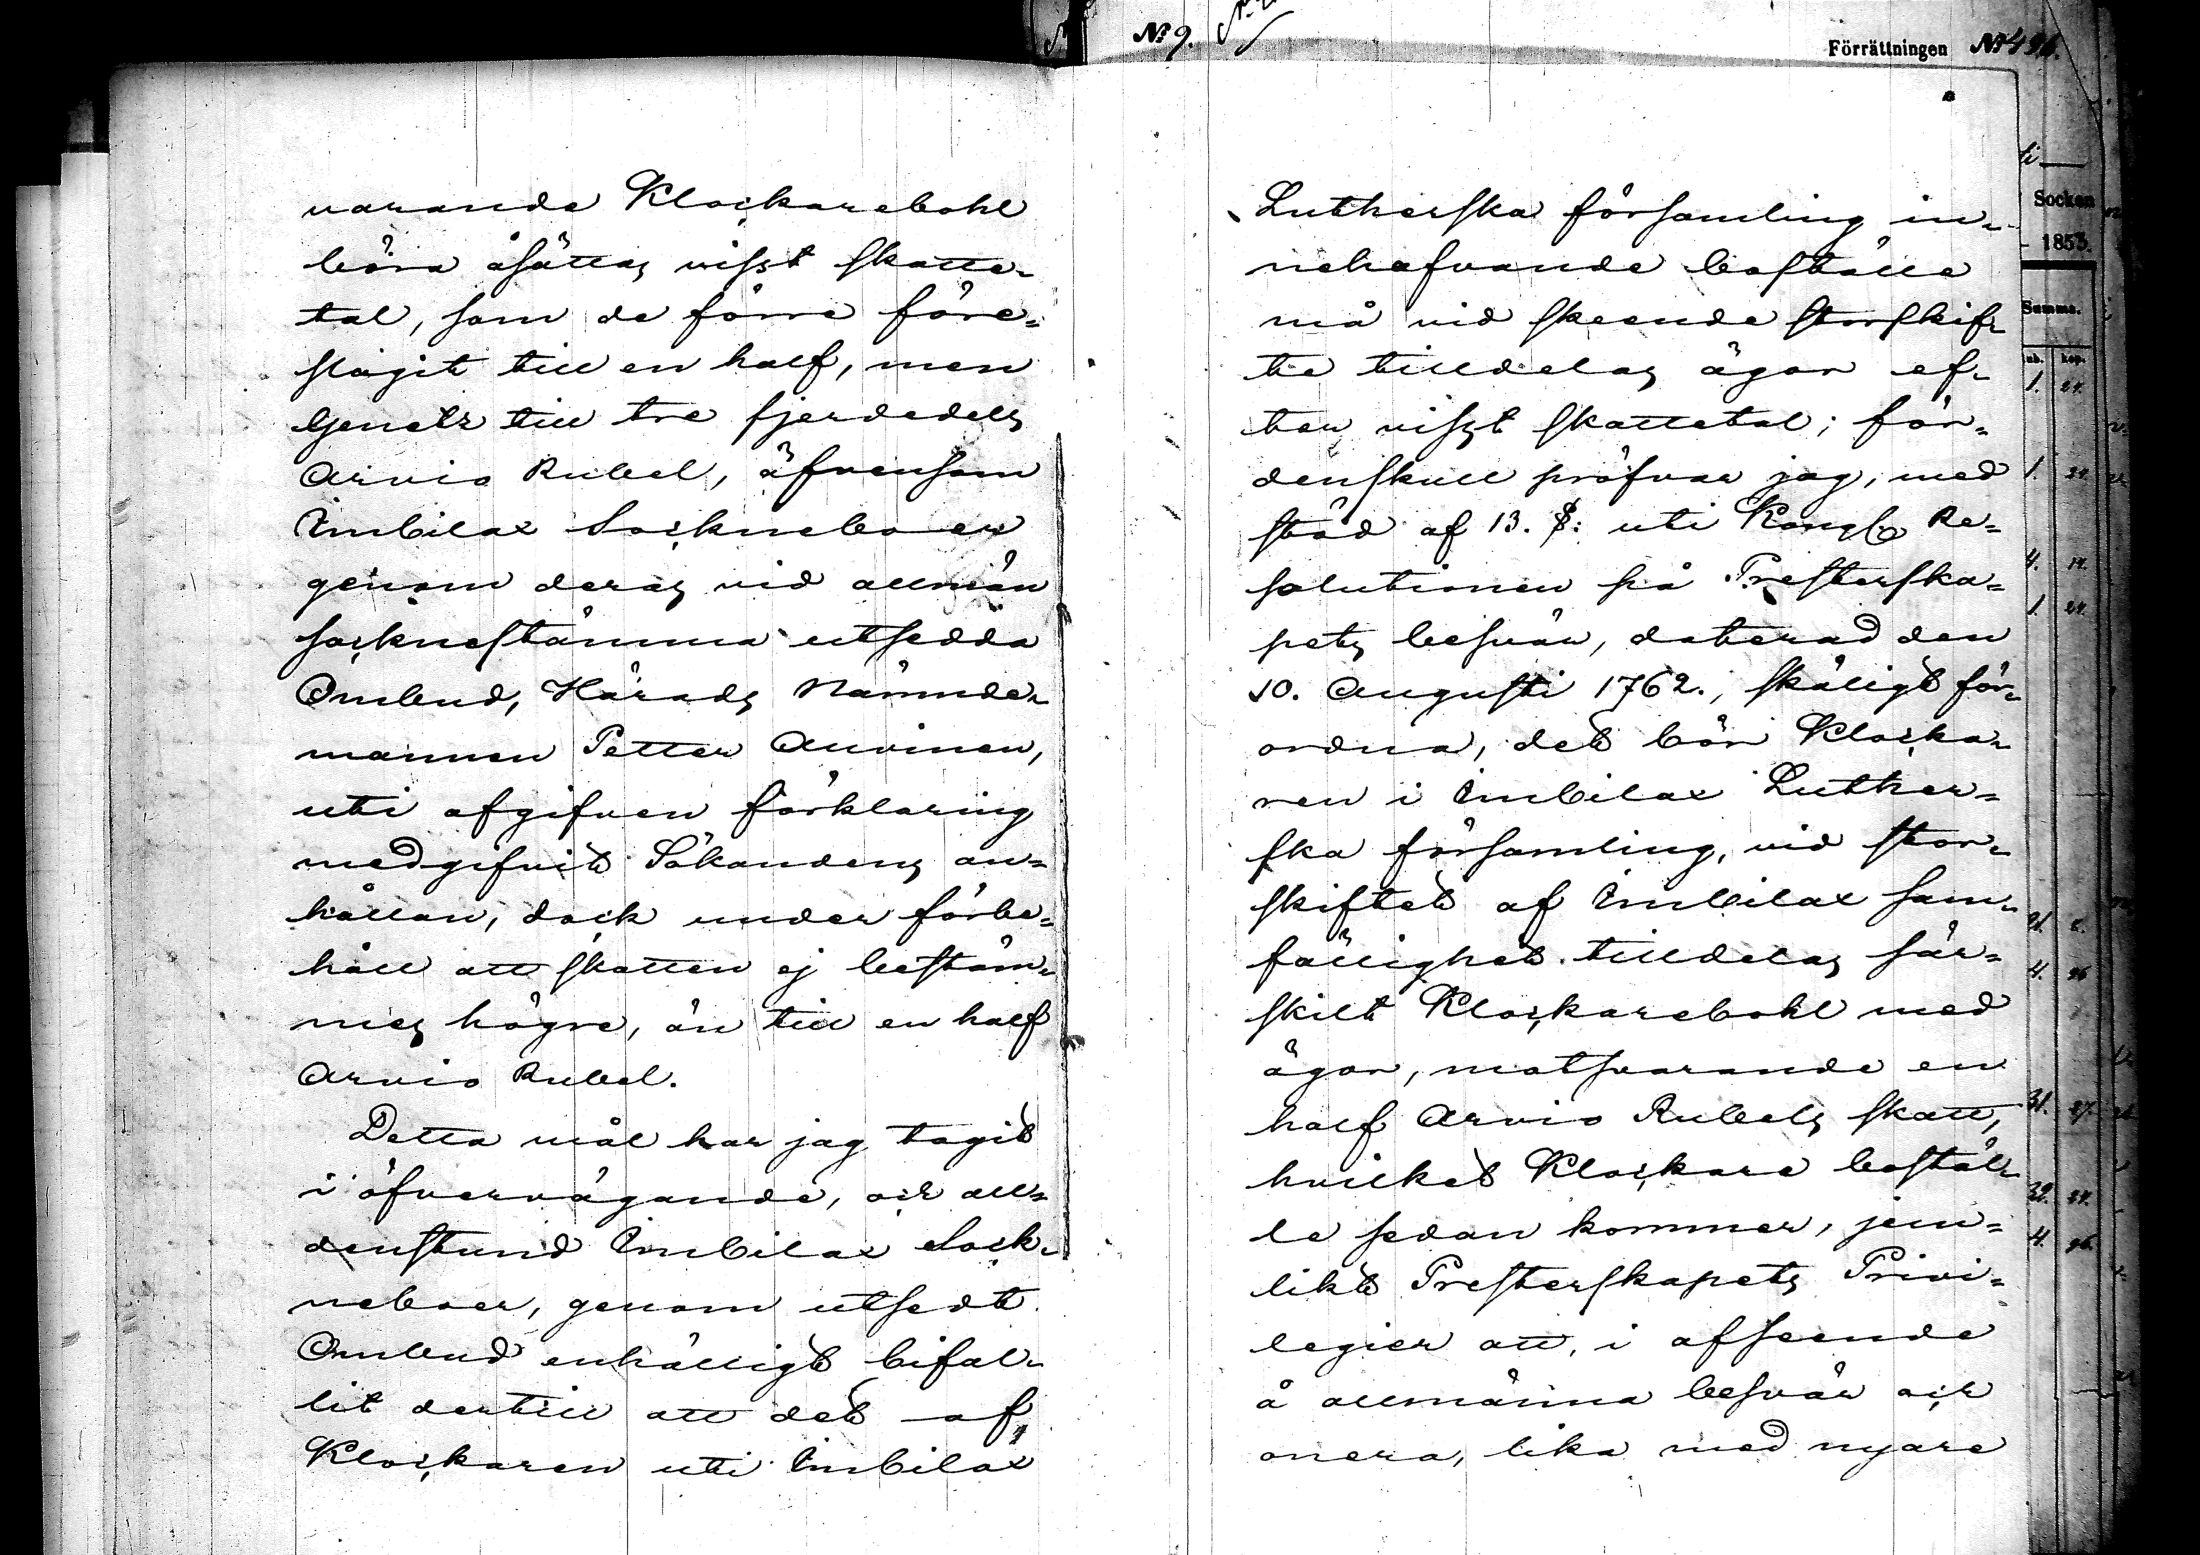 varande Klockarebohl
böra åsättas visst skatte-
tal, som de förre före-
slagit till en half, men
Genetz till tre fjerdedels
Arvio Rubel, äfvensom
Imbilax Sockneboer
genom deras vid allmän
socknestämma utsedda
Ombud, Härads Nämnde-
mannen Petter Auvinen,
uti afgifven förklaring
medgifvit Sökandens an-
hållan, dock under förbe-
håll att skatten ej bestäm-
mes högre, än till en half
Arvio Rubel.
Detta mål har jag tagit
i öfvervägande, och all-
denstund Imbilax Sock-
neboer, genom utsedt
Ombud enhälligt bifal-
lit dertill att det af
Klockaren uti Imbilax
No 9.
Förrättningen No
Lutherska församling in-
nehafvande boställe
må vid skeende storskif-
te tilldelas ägor ef-
ter visst skattetal; för-
denskull pröfvar jag, med
stöd af 13. §: uti Kongl. Re-
solutionen på Presterska-
pets besvär, daterad den
10. Augusti 1762., skäligt för-
ordna, det bör Klocka-
ren i Imbilax Luther-
ska församling, vid stor-
skiftet af Imbilax sam-
fällighet tilldelas sär-
skilt Klockarebohl med
ägor, motsvarande en
half Arvio Rubels skatt,
hvilket Klockare bostäl-
le sedan kommer, jem-
likt Presterskapets Privi-
legier att, i afseende
å allmänna besvär och
onera, lika med nyare
Socken
1853.
Summa.
kop.
1. 24.
1. 24.
4. 14.
1. 24.
4. 96
31. 27.
32. 24.
4. 96.